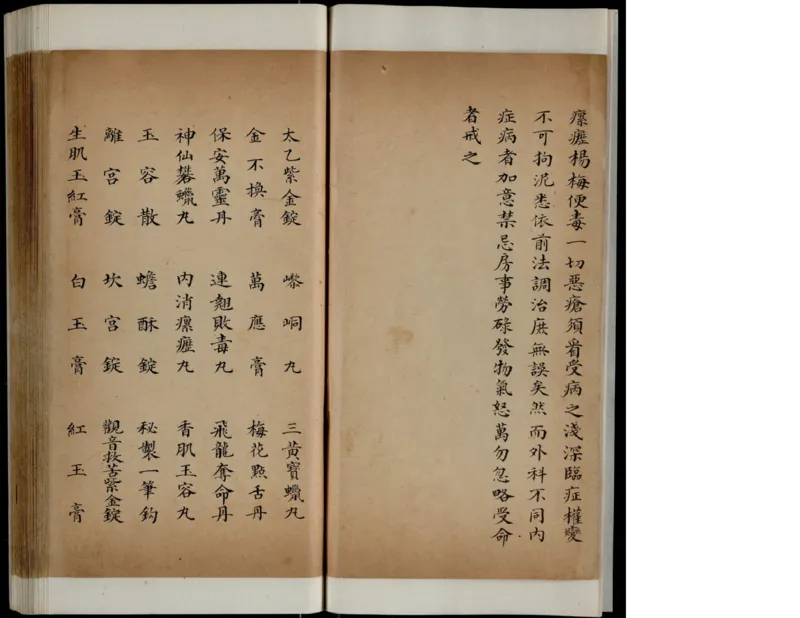 瘰癧楊梅便毒一切惡瘡須看受病之淺深臨症權變
不可拘泥悉依前法調治庶無誤矣然而外科不同內
症病者加意禁忌房事勞碌發物氣怒萬勿忽略受命
者戒之
太乙紫金錠 嶑峒丸 三黃寶蠟丸
金不換膏 萬應膏 梅花點舌丹
保安萬靈丹 連翹敗毒丸 飛龍奪命丹
神仙礬蠟丸 內消瘰癧丸 香肌玉容丸
玉容散 蟾酥錠 秘製一筆鈎
離宮錠 坎宮錠 觀音救苦紫金錠
生肌玉紅膏 白玉膏 紅玉膏